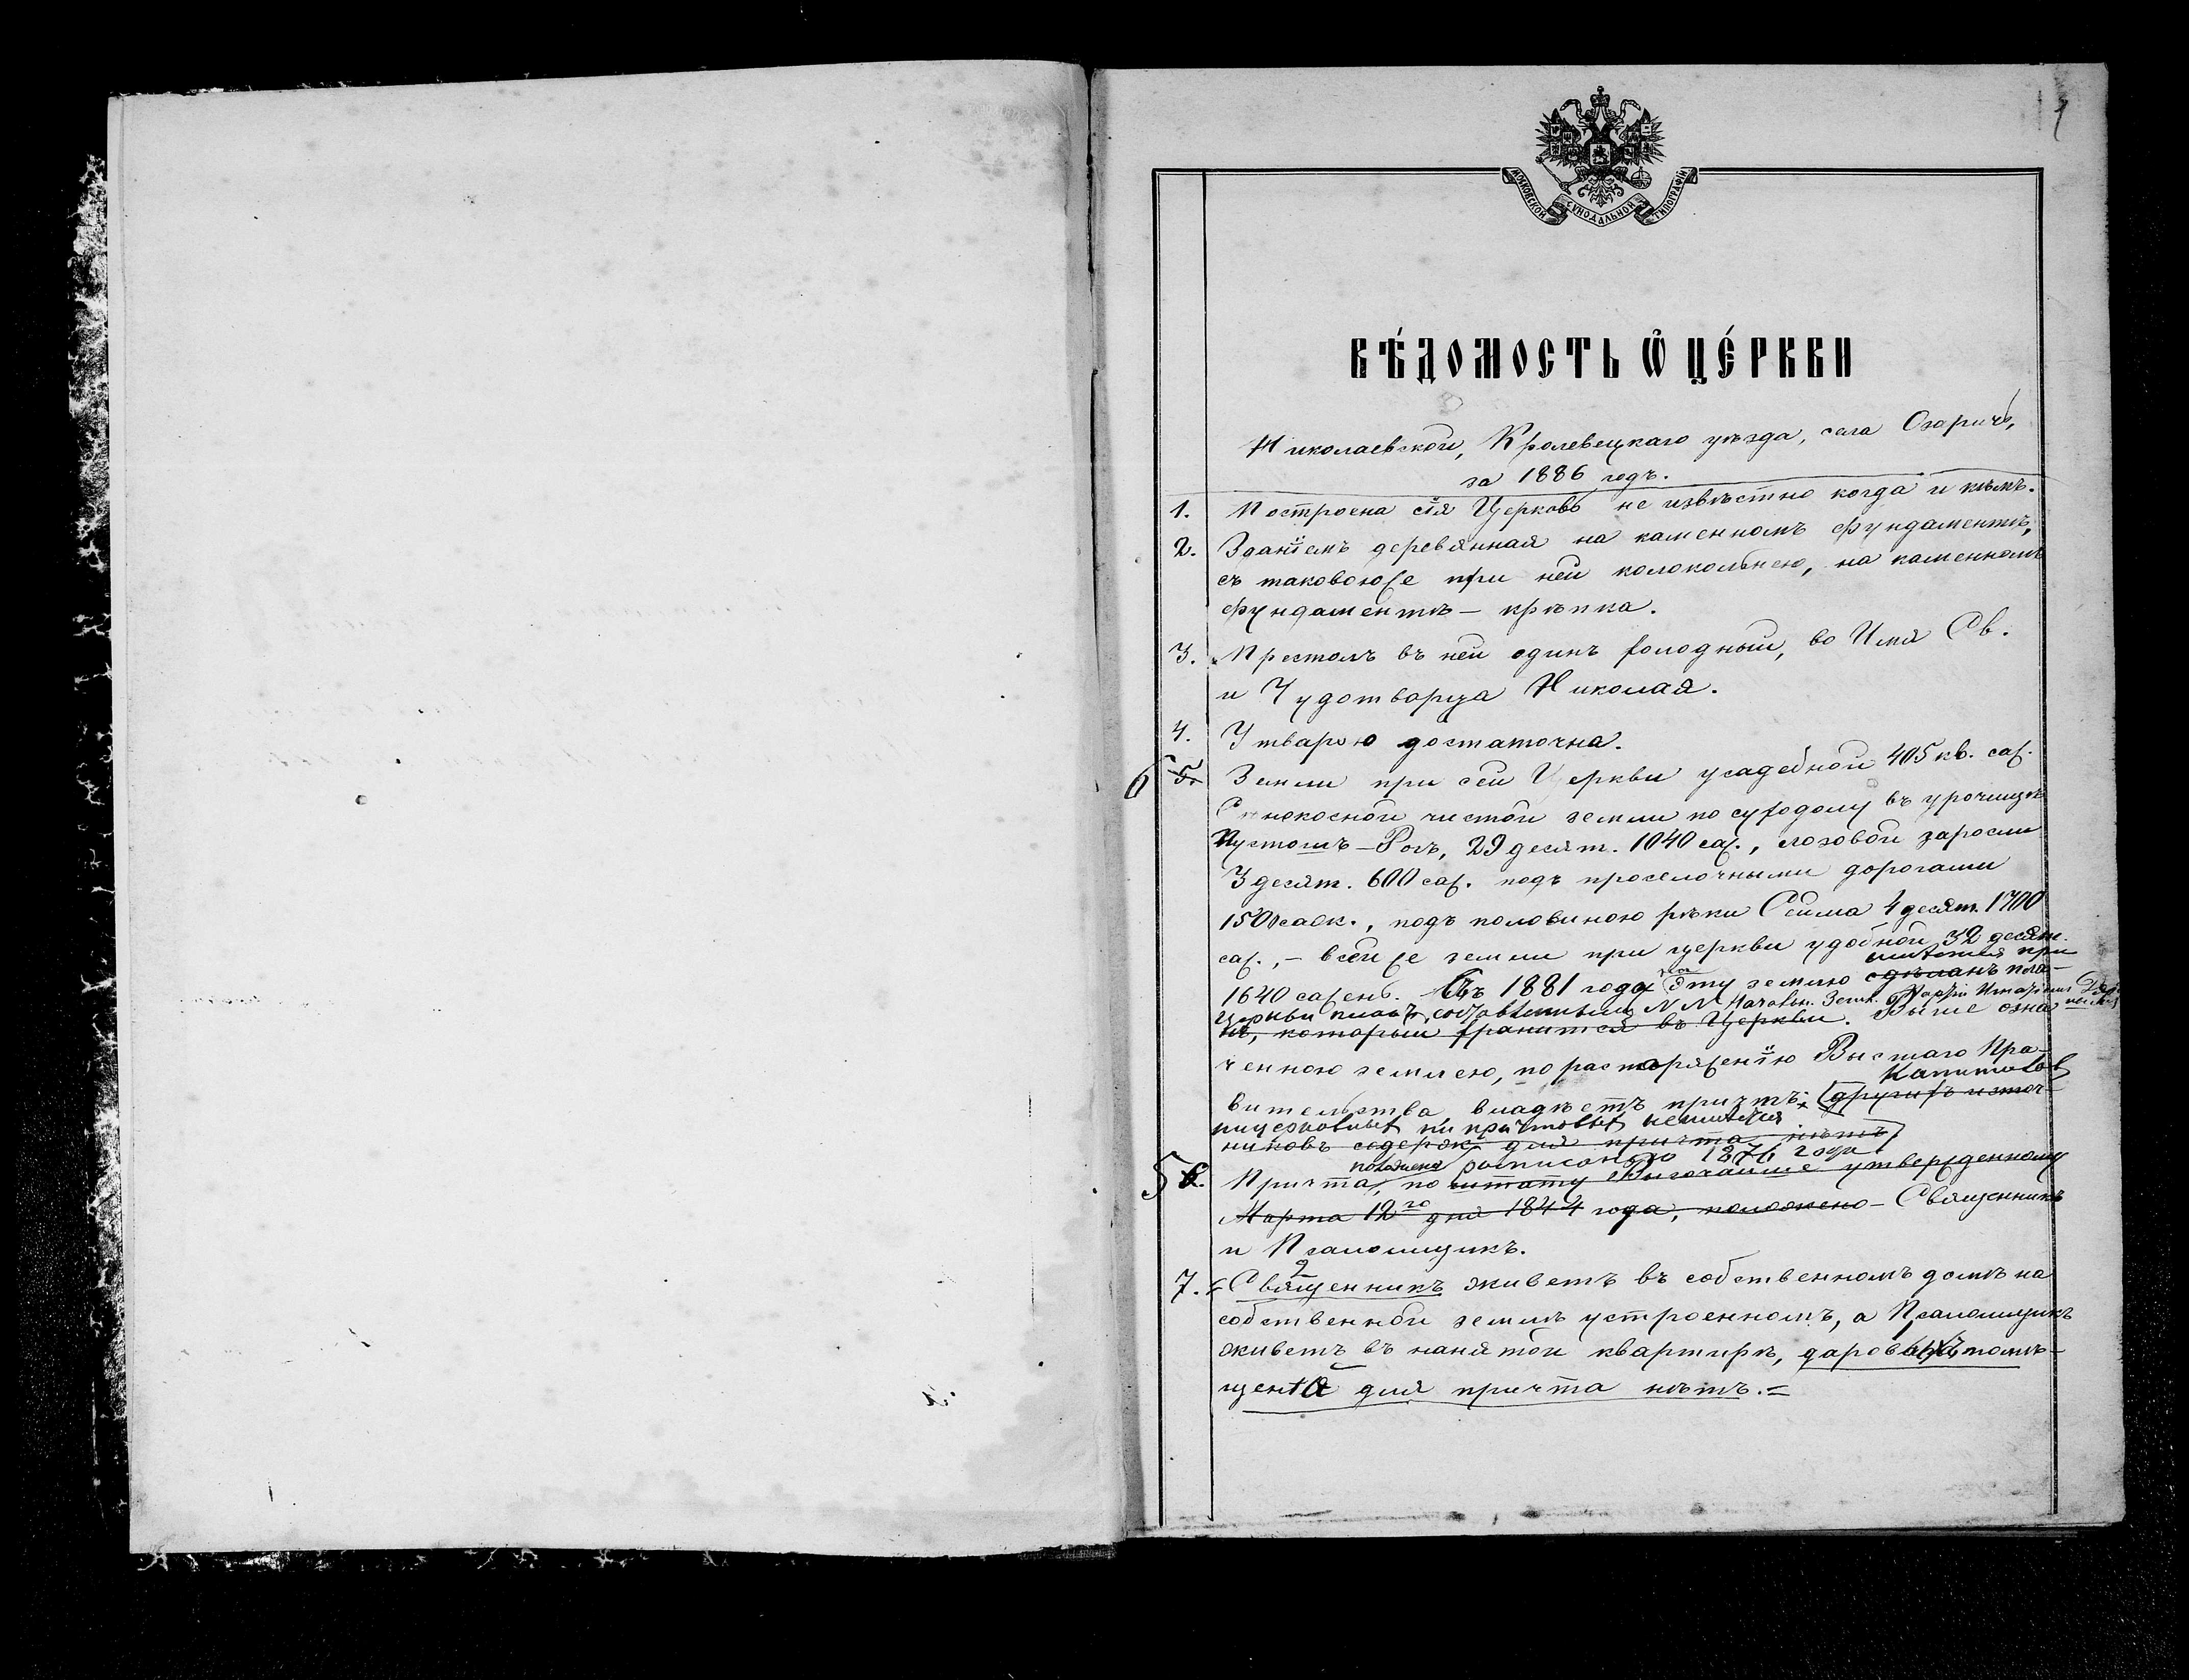 МОСКОВСКОЙ СѴНОДАЛЬНОЙ ТИПОГРАФІИ
ВѢ́ДОМОСТЬ Ѽ ЦЕ́РКВИ
Николаевской, Кролевецкаго уѣзда, села Озаричъ,
за 1886 годъ.
1. Построена сія Церковь не извѣстно когда и кѣмъ.
2. Зданіемъ деревянная на каменномъ фундаментѣ,
съ таковоюже при ней колокольнею, на каменномъ
фундаментѣ – крѣпка.
3. Престолъ въ ней одинъ холодный, во Имя Св.
и Чудотворца Николая.
4. Утварью достаточна.
6 5. Земли при сей Церкви усадебной 405 кв. саж.
Сѣнокосной чистой земли по суходолу въ урочищѣ
Пустошъ – Рогъ, 29 десят. 1040 саж., лозовой заросли
3 десят. 600 саж. подъ проселочными дорогами
150 саж., подъ половиною рѣки Сейма 4 десят. 1700
саж., – всей же земли при церкви удобной 32 десят.
имѣется при
1640 сажень. Въ 1881 года на эту землю сдѣланъ пла–
Церкви планъ, составленный
нъ, который хранится въ Церкви. Выше озна
ченною землею, по распоряженію Высшаго Пра–
Капиталовъ
вительства владѣетъ причтъ. (другихъ источ–
ни церковныхъ ни причтовыхъ неимѣется
никовъ содерж. для причта нѣтъ)
положено росписаніемъ 1876 года
5 6. Причта, по штату Высочайше утвержденному
Марта 12го дня 1844 года, положено – Священникъ
и Псаломщикъ.
2
7. Священникъ живетъ въ собственномъ домѣ на
собственной землѣ устроенномъ, а Псаломщикъ
живетъ въ нанятой квартирѣ,
для причта нѣтъ. =